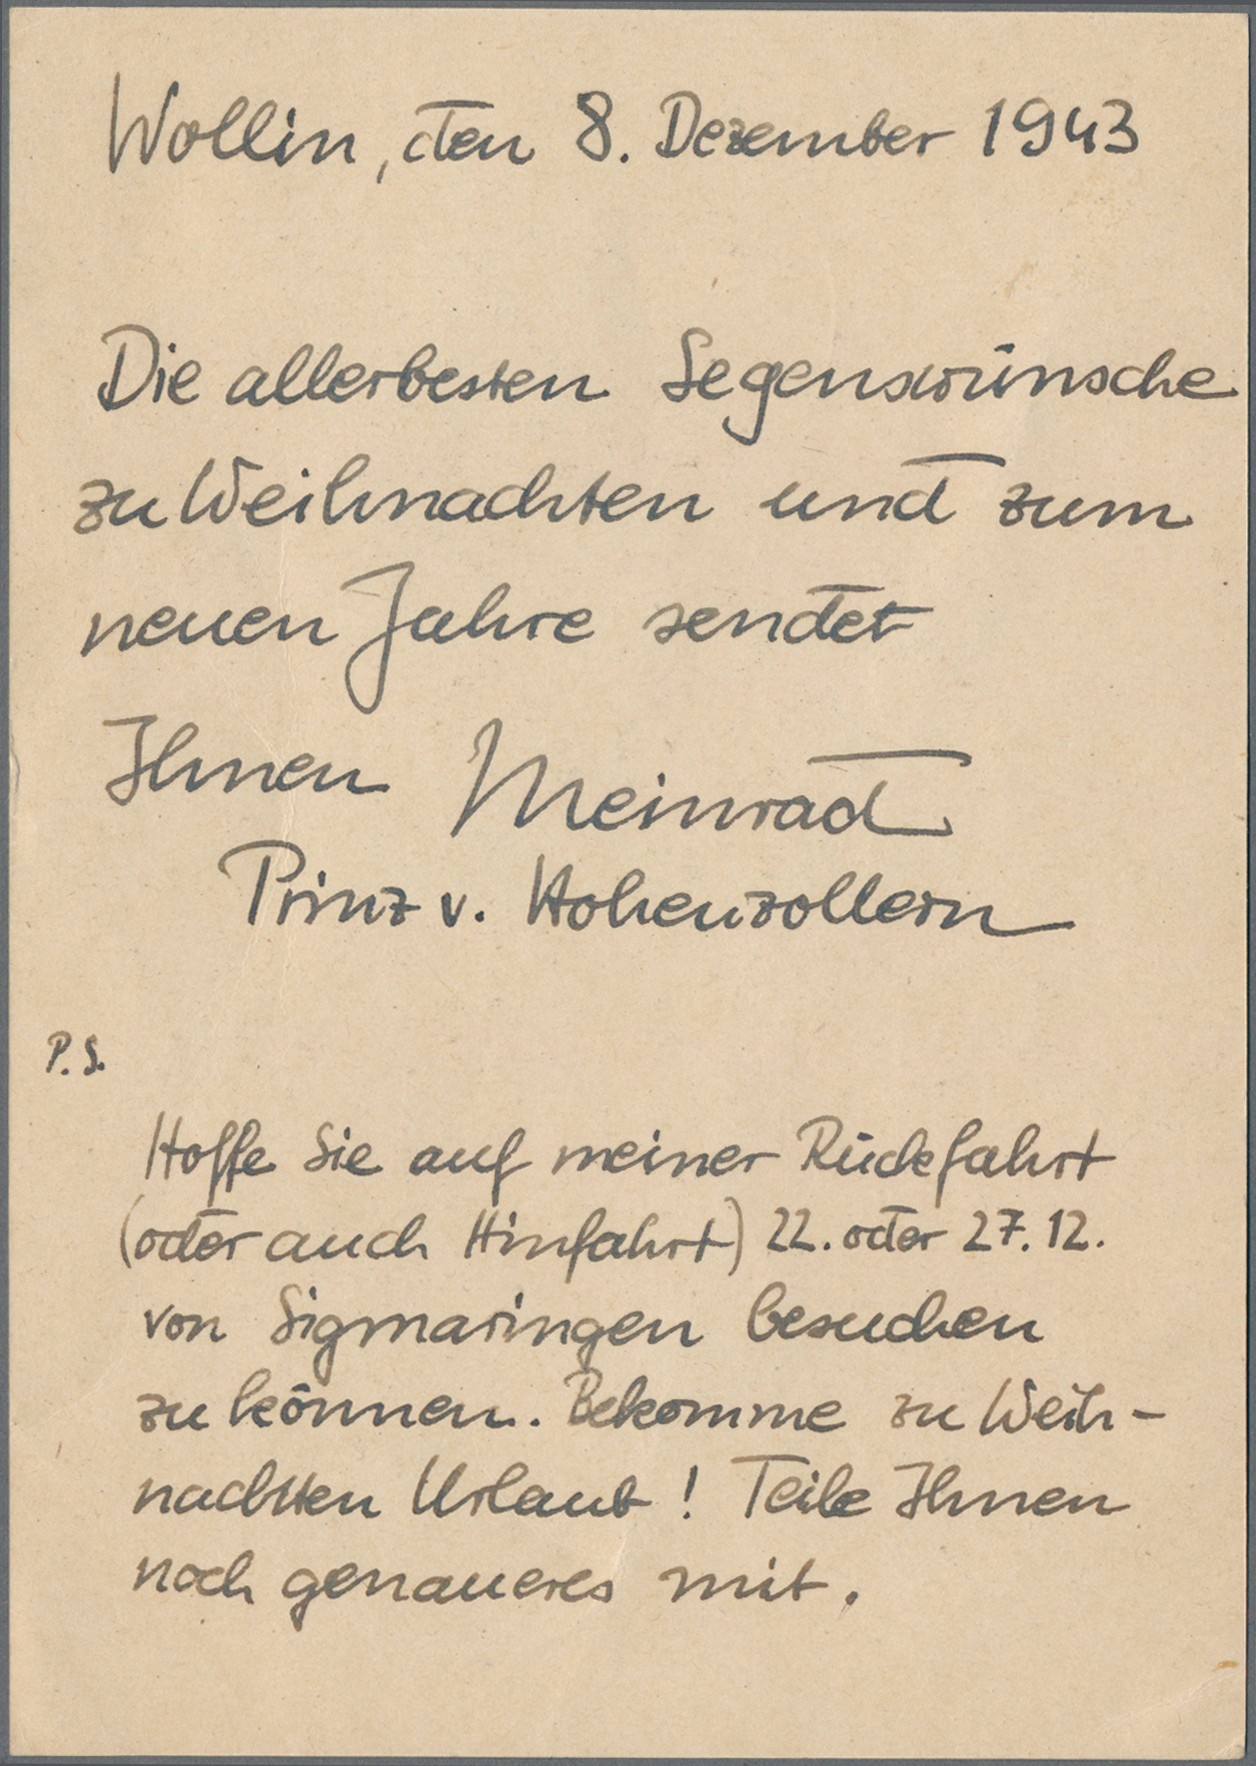 Wollin, den 8. Dezember 1943
Die allerbesten Segenswünsche
zu Weihnachten und zum
neuen Jahre sendet
Ihnen Meinrad
Prinz v. Hohenzollern
P. S.
Hoffe Sie auf meiner Rückfahrt
(oder auch Hinfahrt) 22. oder 27. 12.
von Sigmaringen besuchen
zu können. Bekomme zu Weih-
nachten Urlaub! Teile Ihnen
noch genaueres mit.